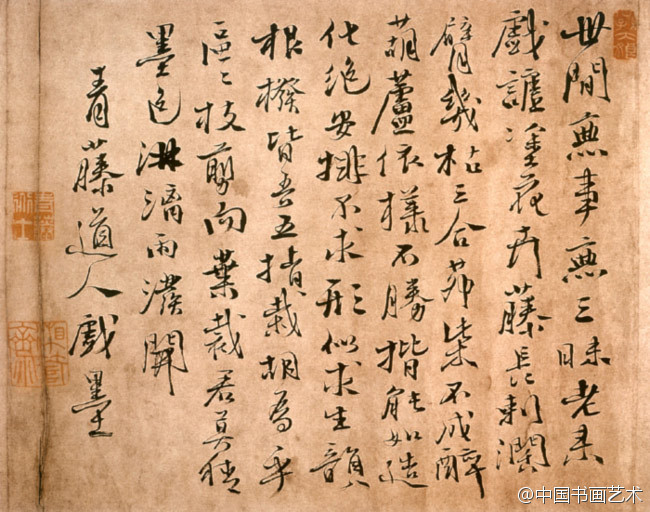 世間無事無三昧老来
戲謔塗花卉藤長刺濶
臂幾枯三合茅柴不成醉
葫蘆依樣不勝揩能如造
化絶安排不求形似求生韻
根撥皆吾五指栽胡為乎
區〻枝剪而葉裁君莫猜
墨色淋漓雨潑開
青藤道人戲墨
@中国书画艺术